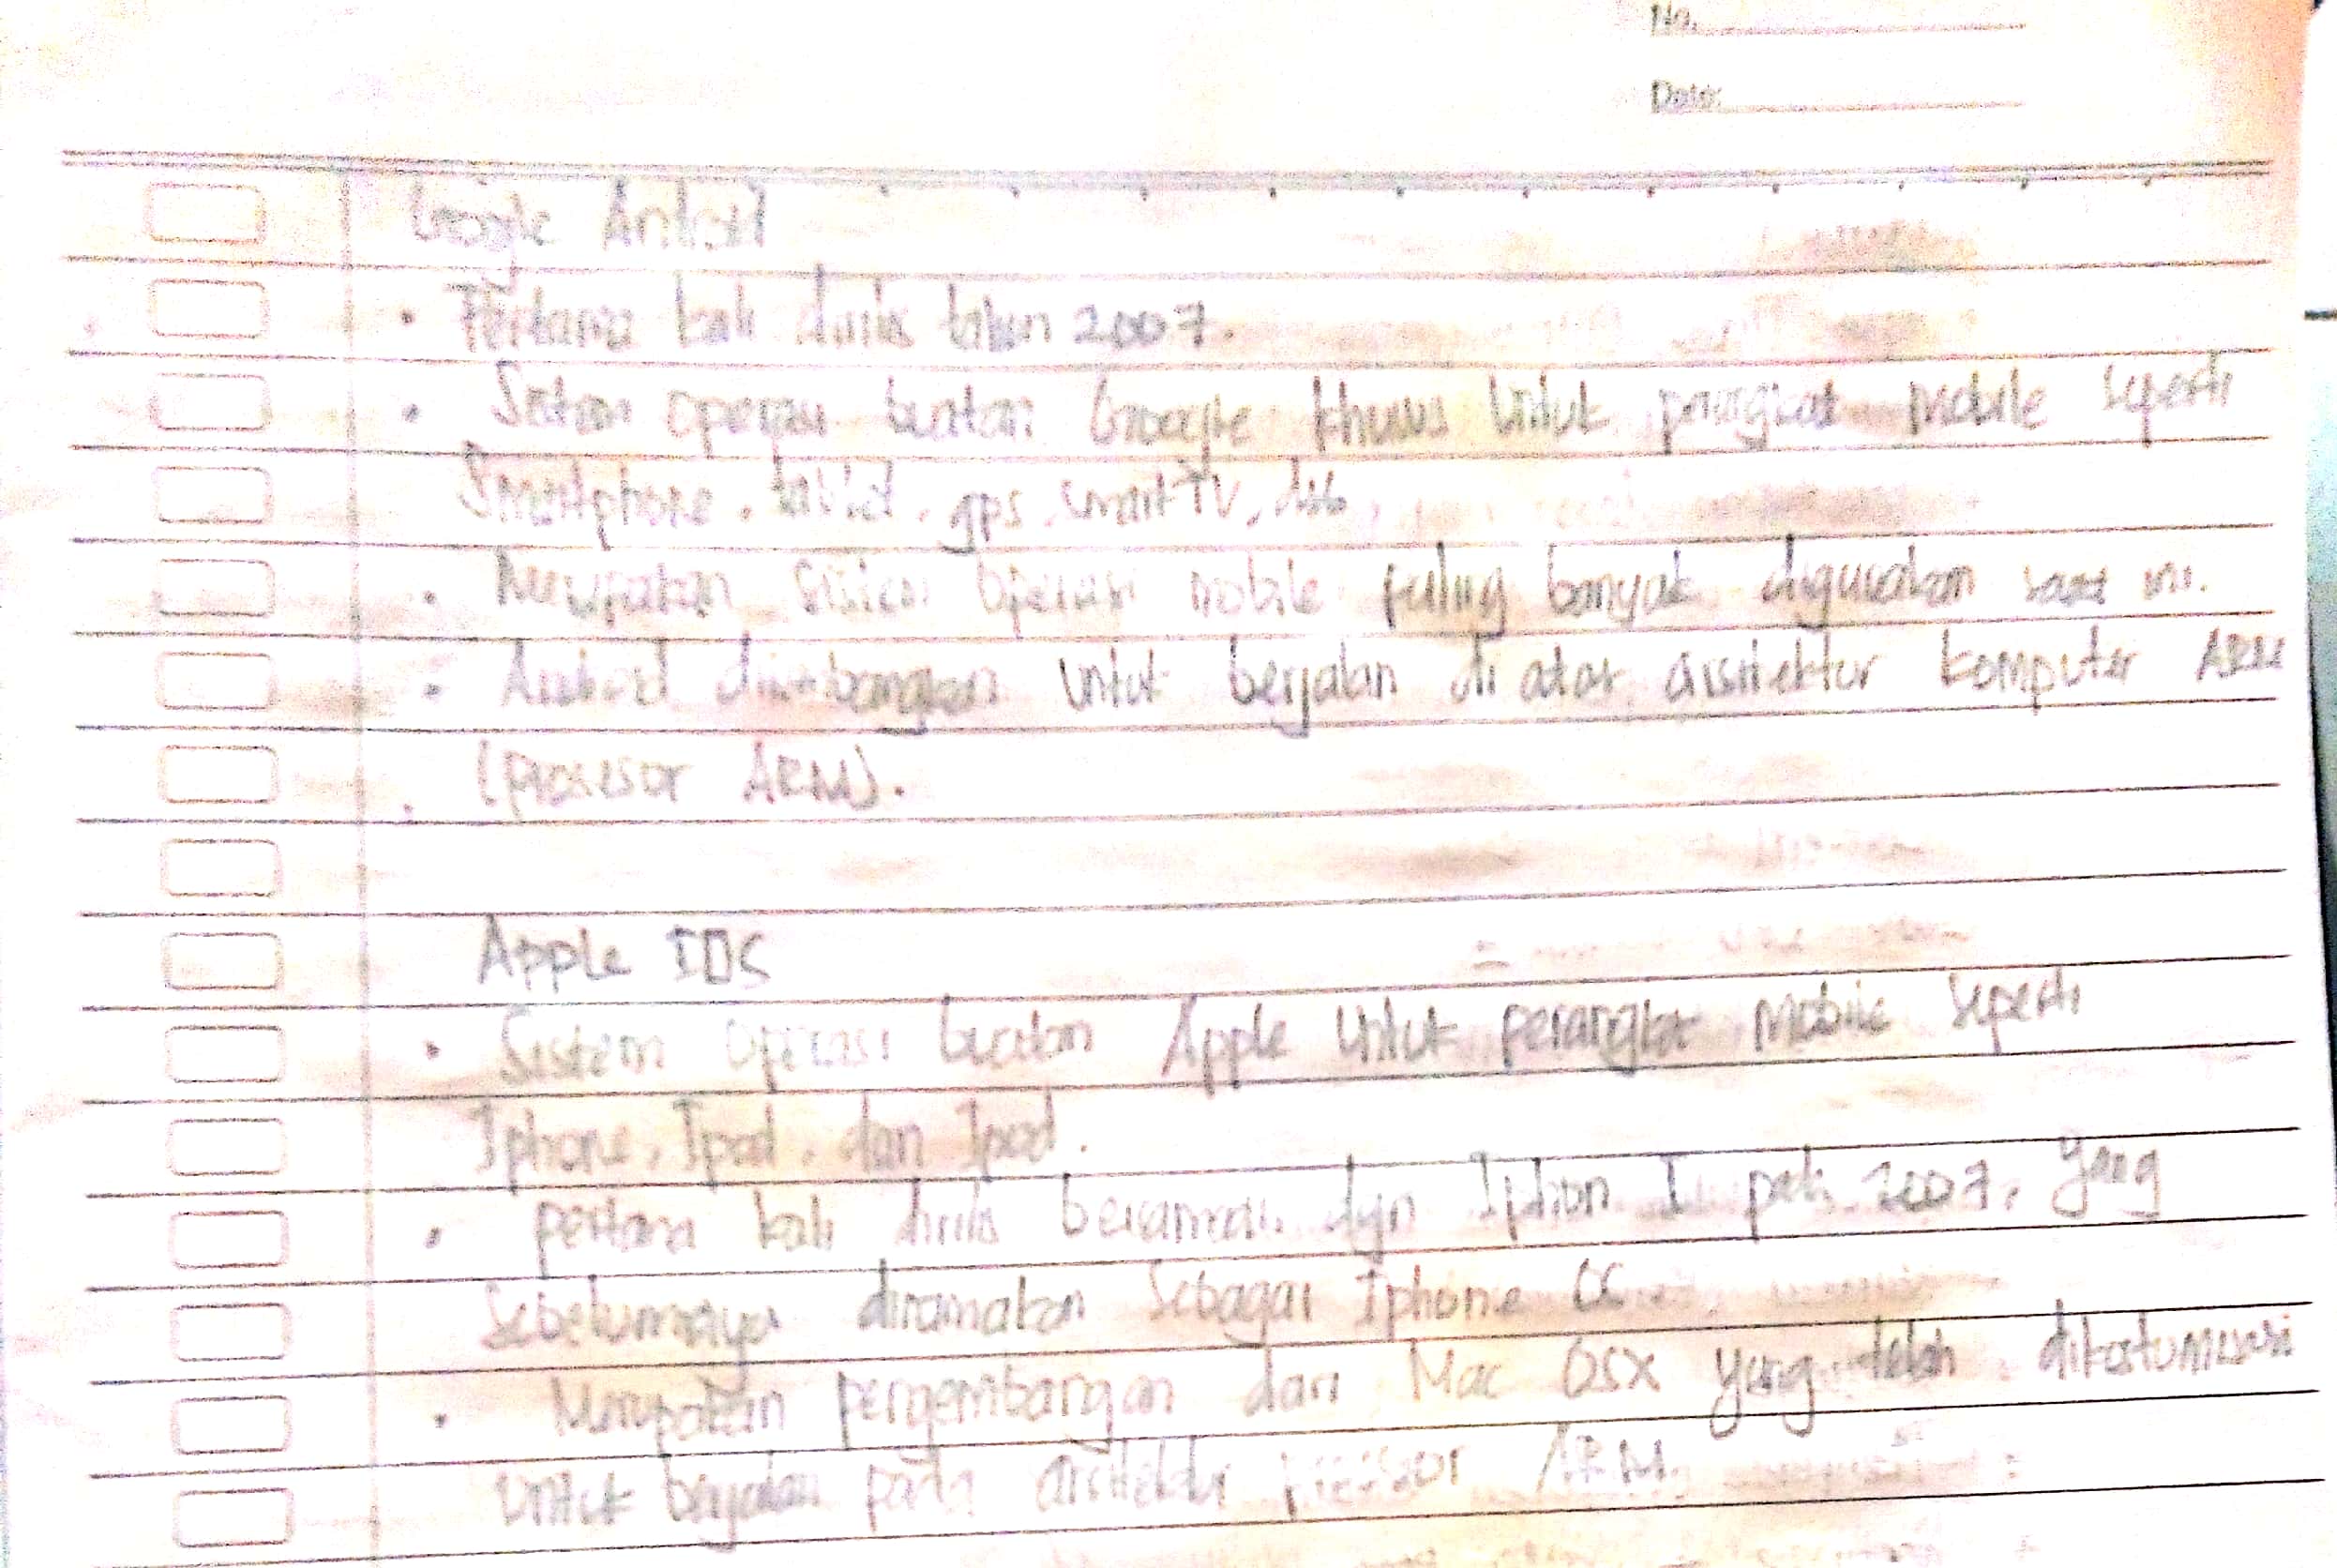 No.
Date:
Google Android
• Pertama kali dirilis tahun 2007.
• Sistem operasi buatan Google khusus Untuk perangkat mobile seperti
Smartphone, tablet, gps, smart TV, dsb.
• Merupakan sistem operasi mobile paling banyak digunakan saat ini.
• Android dikembangkan Untuk berjalan di atas arsitektur komputer ARM
(prosesor ARM).
Apple IOS
• Sistem operasi buatan Apple Untuk perangkat Mobile seperti
Iphone, Ipad, dan Ipod.
• pertama kali dirilis bersamaan dgn Iphon I pada 2007, Yang
Sebelumnya dinamakan Sebagai Iphone OS
• Merupakan pengembangan dari Mac OSX yang telah
Untuk berjalan pada arsitektur prosesor ARM